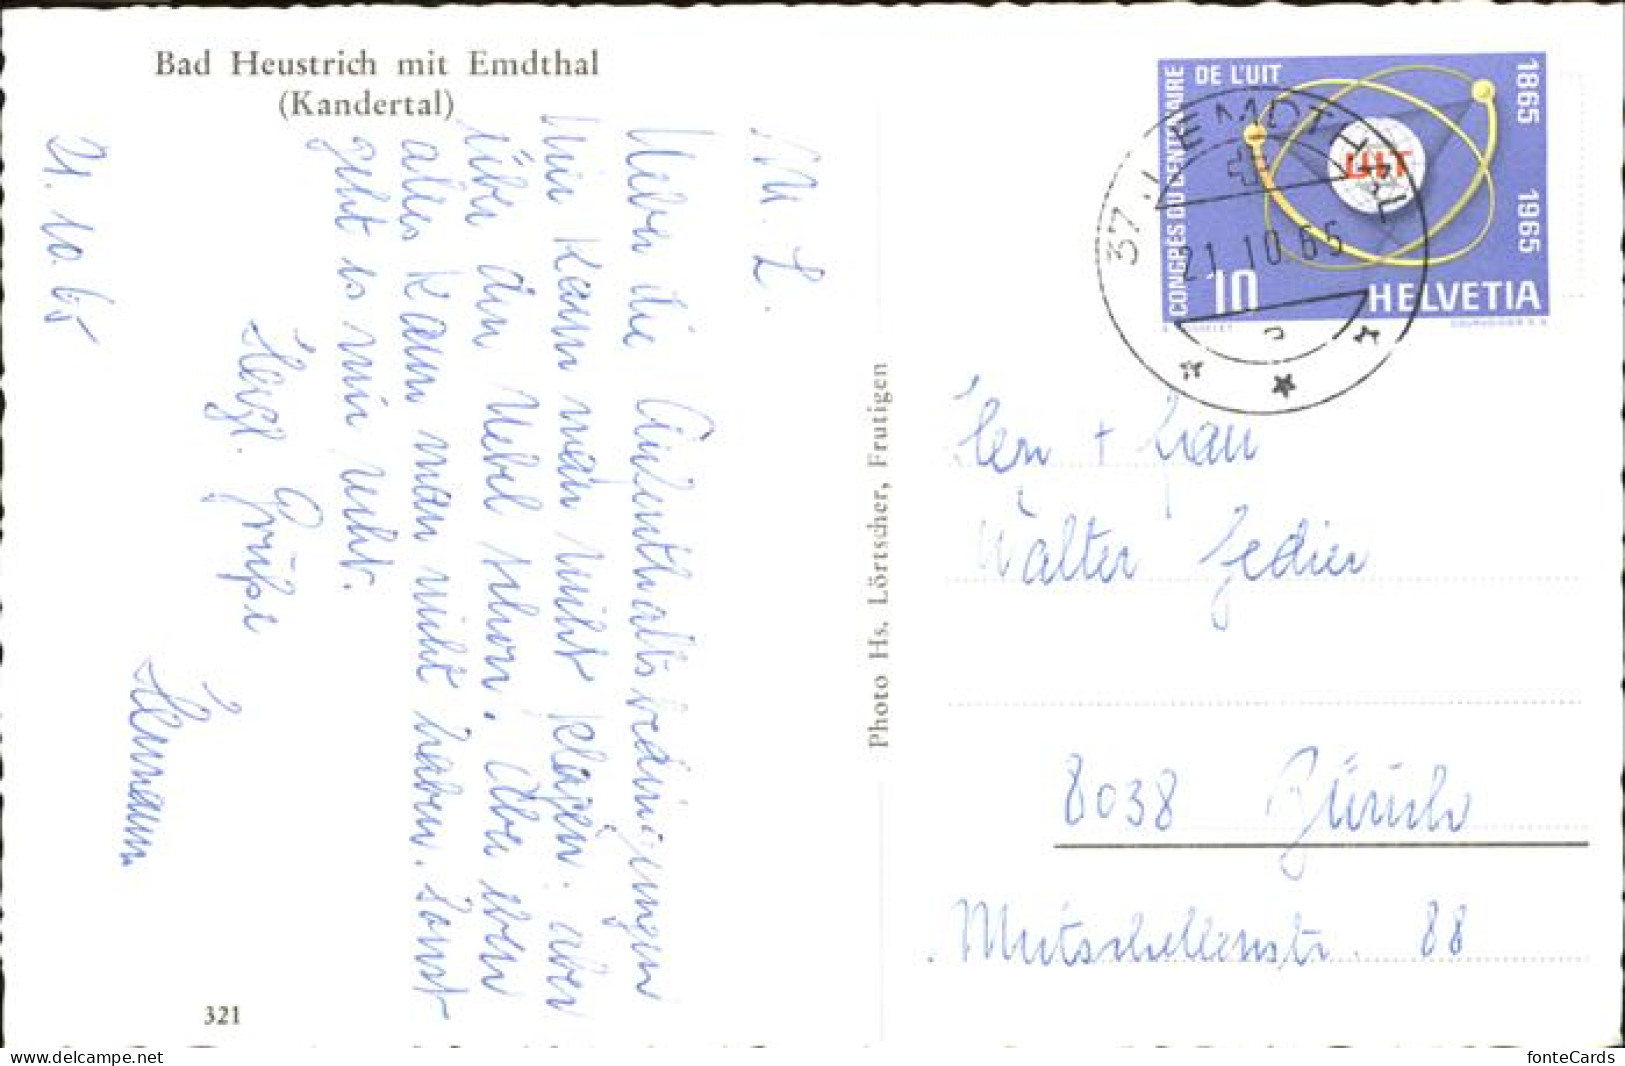 Bad Heustrich mit Emdthal
(Kandertal)
21.10.65
M. L.
Ueber die Aufenthaltsbedingungen
hier kann man nicht klagen. aber
über den Nebel schon. Aber eben
alles kann man nicht haben. Sonst
geht es mir recht.
Herzl. Grüsse
Hermann
321
Photo Hs. Lörtscher, Frutigen
CONGRÈS DU CENTENAIRE
DE L'UIT
1865
1965
UIT
10
HELVETIA
COURVOISIER S.A.
EMDTHAL
21.10.65
Herr + Frau
Walter
8038 Zürich
Mutschellenstr. 88
www.delcampe.net
fonteCards